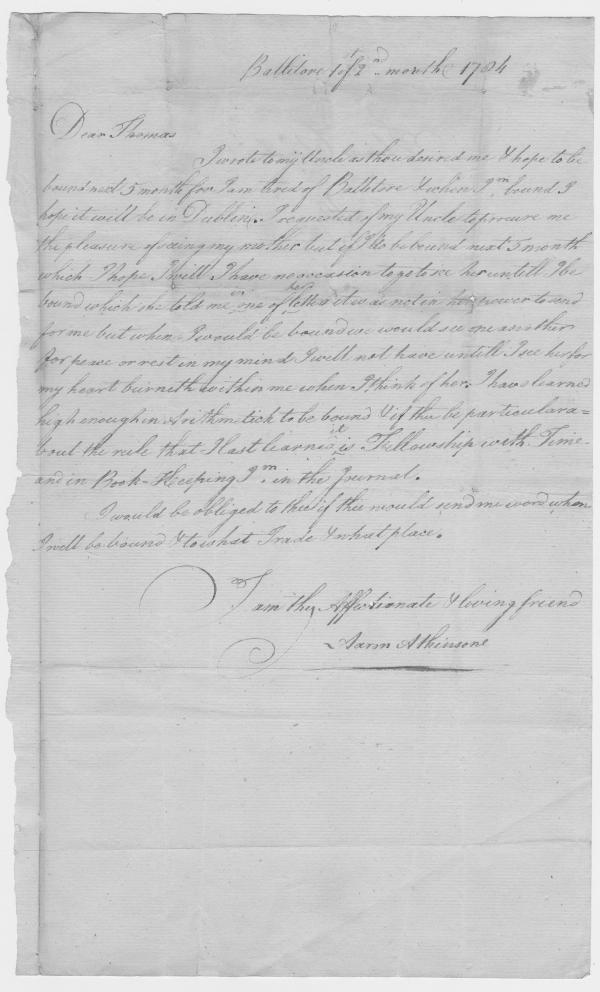 Ballitore 1st of 2nd month 1784
Dear Thomas
I wrote to my Uncle as thou desired me & hope to be
bound next 5 month for I am tired of Balitore & when I'm bound I
hope it will be in Dublin. I requested of my Uncle to procure me
the pleasure of seeing my mother but if I'm to be bound next 5 month
which I hope I will I have no occasion to go to see her untill I be
bound which she told me in one of her letters it was not in her power to send
for me but when I would be bound we would see one another
for peace or rest in my mind I will not have untill I see her for
my heart burneth within me when I think of her. I have learned
high enough in Arithmetick to be bound & if thee be particular a=
bout the rule that I last learned it is Fellowship with Time
and in Book-Keeping I'm in the Journal.
I would be obliged to thee if thee would send me word when
I will be bound & to what Trade & what place.
I am thy Affectionate & loving friend
Aaron Atkinson